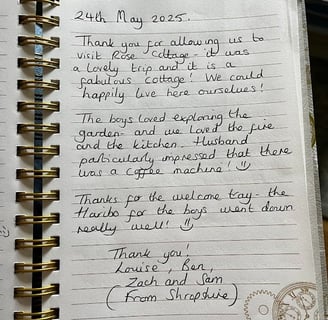 24th May 2025.
Thank you for allowing us to
visit Rose Cottage - it was
a lovely trip and it is a
fabulous cottage! We could
happily live here ourselves!
The boys loved exploring the
garden - and we loved the fire
and the kitchen. Husband
particularly impressed that there
was a coffee machine!
Thanks for the welcome tray - the
Haribo for the boys went down
really well!
Thank you!
Louise, Ben,
Zach and Sam
(From Shropshire)